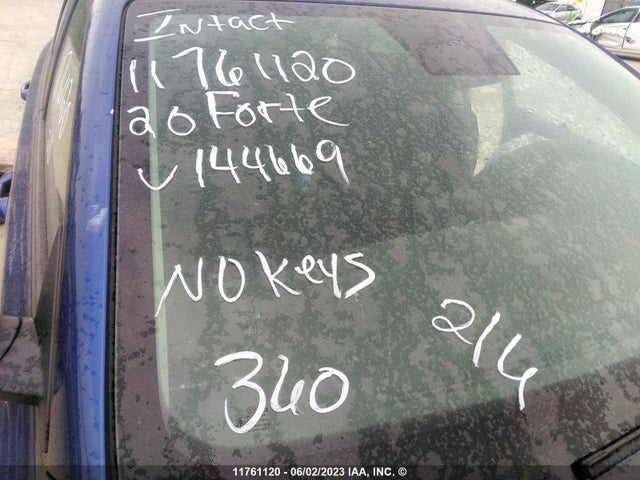 Intact
11761120
20 Forte
V144669
NO Keys
360
2/4
11761120 - 06/02/2023 IAA, INC. ©